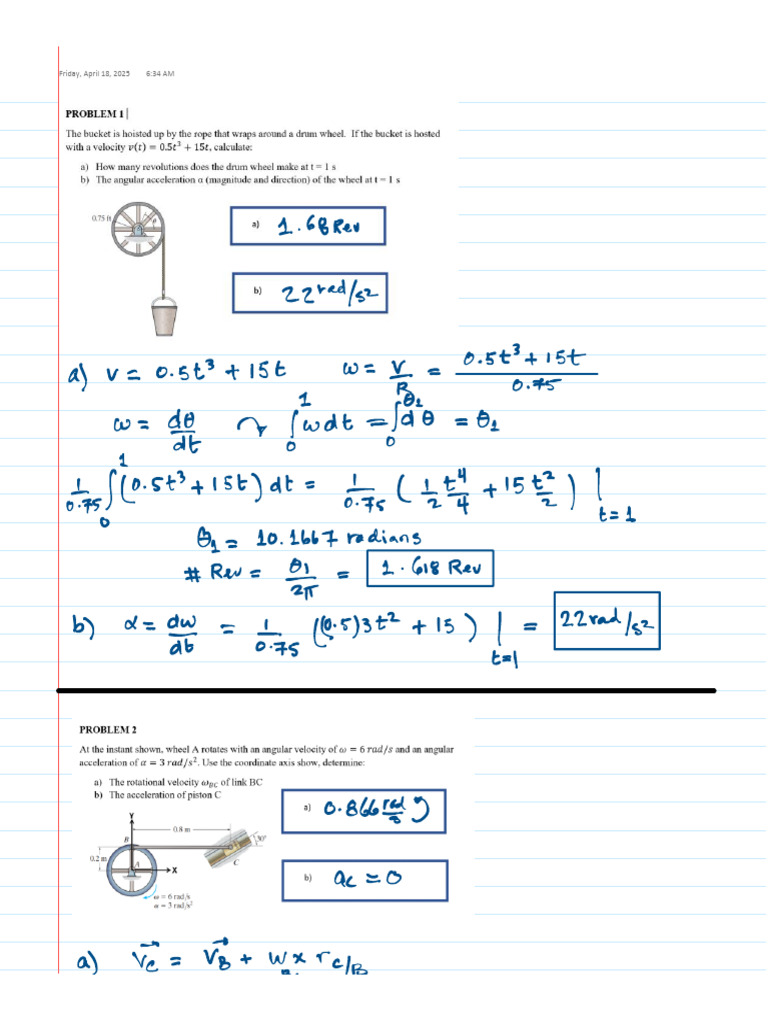 Friday, April 18, 2025 6:34 AM
PROBLEM 1
The bucket is hoisted up by the rope that wraps around a drum wheel. If the bucket is hosted
with a velocity v(t) = 0.5t³ + 15t, calculate:
a) How many revolutions does the drum wheel make at t = 1 s
b) The angular acceleration α (magnitude and direction) of the wheel at t = 1 s
0.75 ft
a) 1.68 Rev
b) 22 rad/s2
a) v = 0.5t³ + 15t ω = V/R = (0.5t³ + 15t)/0.75
ω = dθ/dt ↷ ∫₀¹ ω dt = ∫₀^θ₁ dθ = θ₁
1/0.75 ∫₀¹ (0.5t³ + 15t) dt = 1/0.75 (1/2 t⁴/4 + 15 t²/2) | t=1
θ₁ = 10.1667 radians
# Rev = θ₁/2π = 1.618 Rev
b) α = dω/dt = 1/0.75 ((0.5)3t² + 15) | t=1 = 22 rad/s2
PROBLEM 2
At the instant shown, wheel A rotates with an angular velocity of ω = 6 rad/s and an angular
acceleration of α = 3 rad/s². Use the coordinate axis show, determine:
a) The rotational velocity ω_BC of link BC
b) The acceleration of piston C
a) 0.866 rad/s
b) ac = 0
Y
0.8 m
B
30°
0.2 m
A
X
C
ω = 6 rad/s
α = 3 rad/s²
a) Vc = VB + W × rC/B